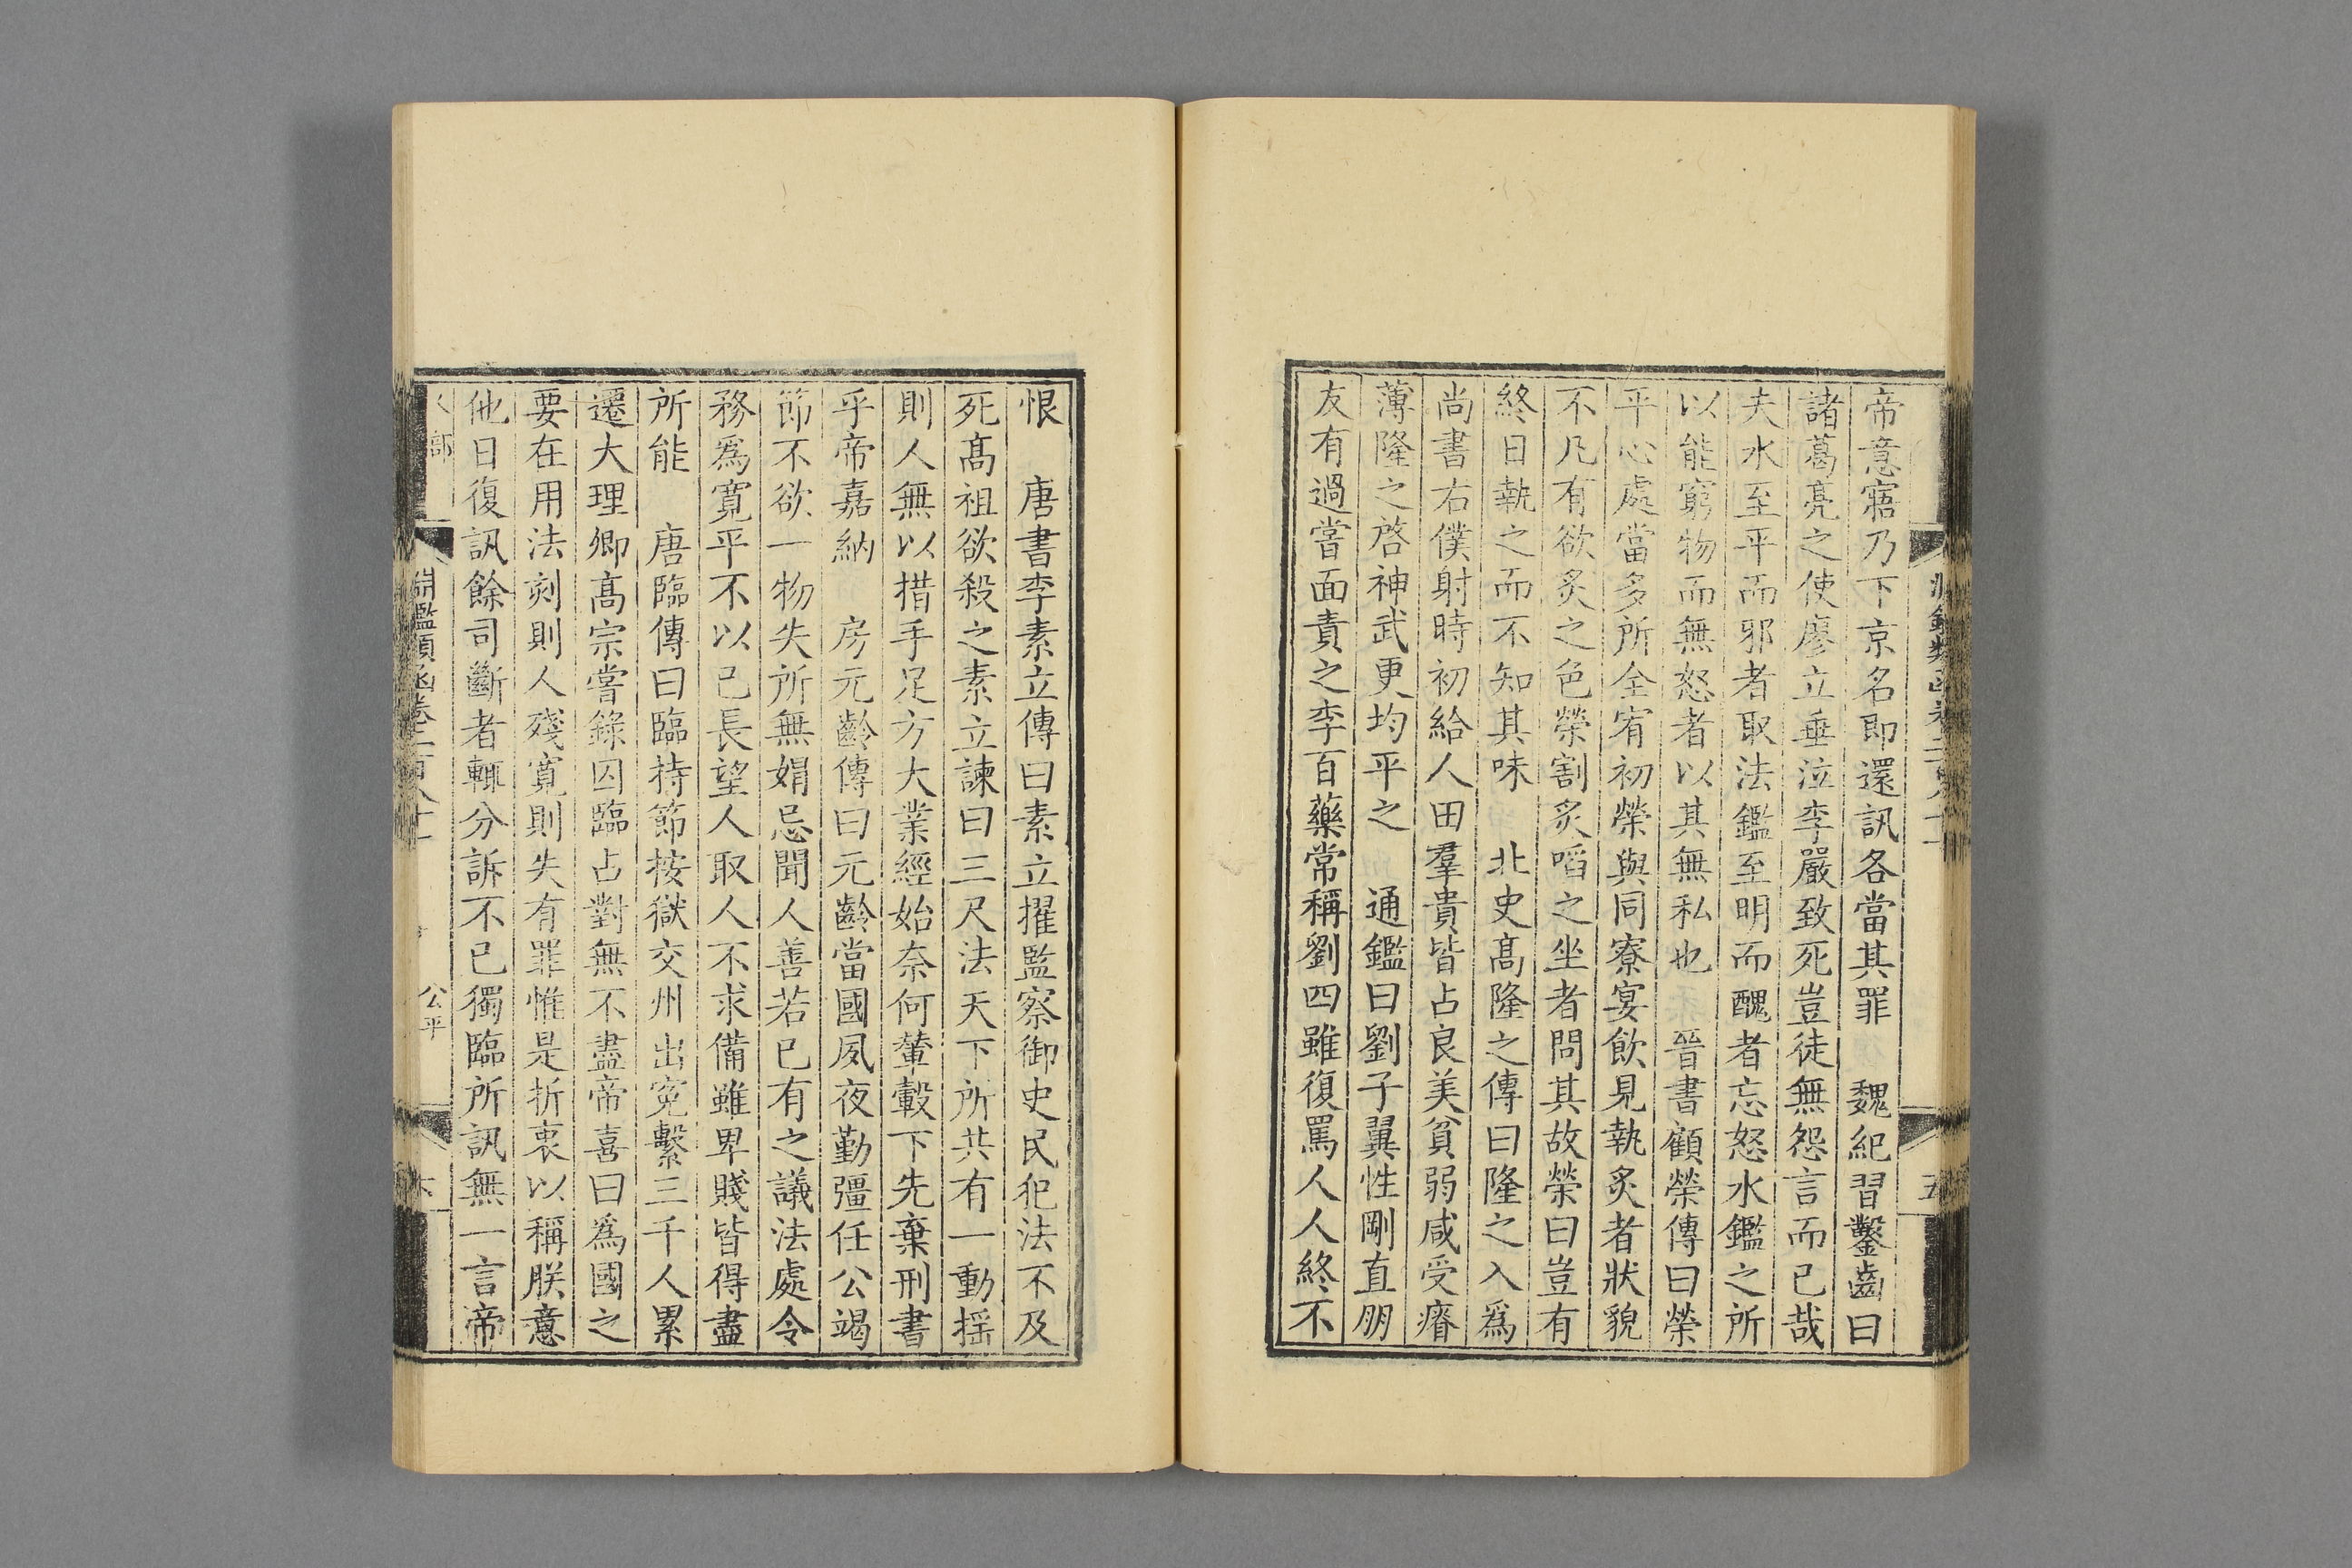 帝意寤乃下京名即還訊各當其罪　魏紀習鑿齒曰
諸葛亮之使廖立垂泣李嚴致死豈徒無怨言而已哉
夫水至平而邪者取法鑑至明而醜者忘怒水鑑之所
以能窮物而無怒者以其無私也　晉書顧榮傳曰榮
平心處當多所全宥初榮與同寮宴飲見執炙者狀貌
不凡有欲炙之色榮割炙啗之坐者問其故榮曰豈有
終日執之而不知其味　北史髙隆之傳曰隆之入爲
尚書右僕射時初給人田羣貴皆占良美貧弱咸受瘠
薄隆之啓神武更均平之　通鑑曰劉子翼性剛直朋
友有過嘗面責之李百藥常稱劉四雖復罵人人終不
恨　唐書李素立傳曰素立擢監察御史民犯法不及
死髙祖欲殺之素立諫曰三尺法天下所共有一動揺
則人無以措手足方大業經始奈何輦轂下先棄刑書
乎帝嘉納　房元齡傳曰元齡當國夙夜勤彊任公竭
節不欲一物失所無娟忌聞人善若己有之議法處令
務爲寛平不以己長望人取人不求備雖卑賤皆得盡
所能　唐臨傳曰臨持節按獄交州出寃繫三千人累
遷大理卿髙宗嘗錄囚臨占對無不盡帝喜曰爲國之
要在用法刻則人殘寛則失有罪惟是折衷以稱朕意
他日復訊餘司斷者輒分訴不已獨臨所訊無一言帝
部
淵鑑類函卷二百八十一
公平
六